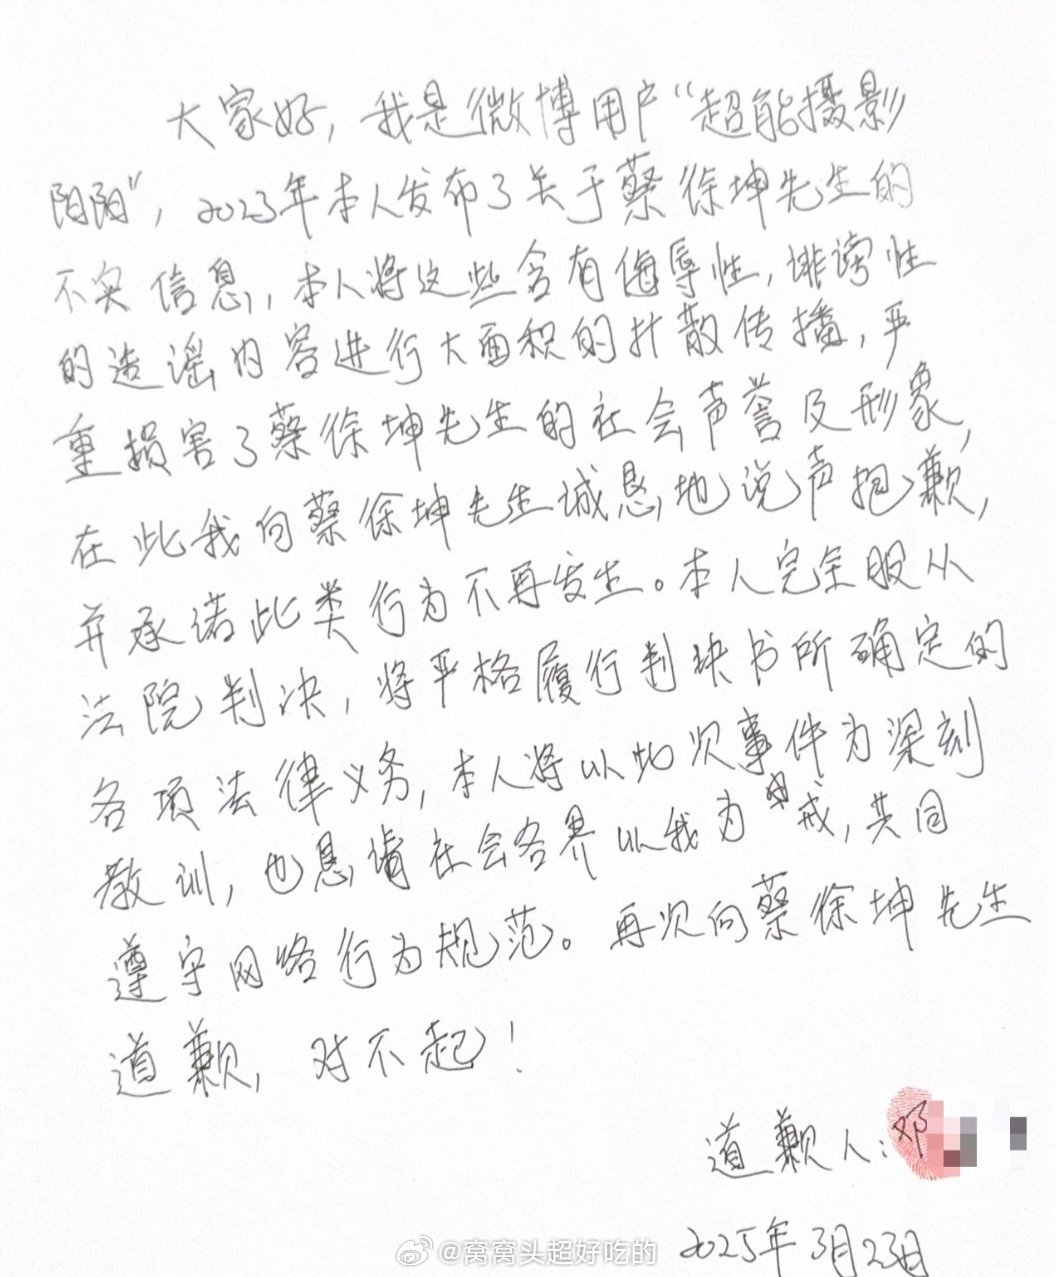 大家好，我是微博用户“超能摄影
阳阳”，2023年本人发布了关于蔡徐坤先生的
不实信息，本人将这些含有侮辱性，诽谤性
的造谣内容进行大面积的扩散传播，严
重损害了蔡徐坤先生的社会声誉及形象，
在此我向蔡徐坤先生诚恳地说声抱歉，
并承诺此类行为不再发生。本人完全服从
法院判决，将严格履行判决书所确定的
各项法律义务，本人将以此次事件为深刻
教训，也恳请社会各界以我为戒，共同
遵守网络行为规范。再次向蔡徐坤先生
道歉，对不起！
道歉人：邓
2025年3月23日
@窝窝头超好吃的